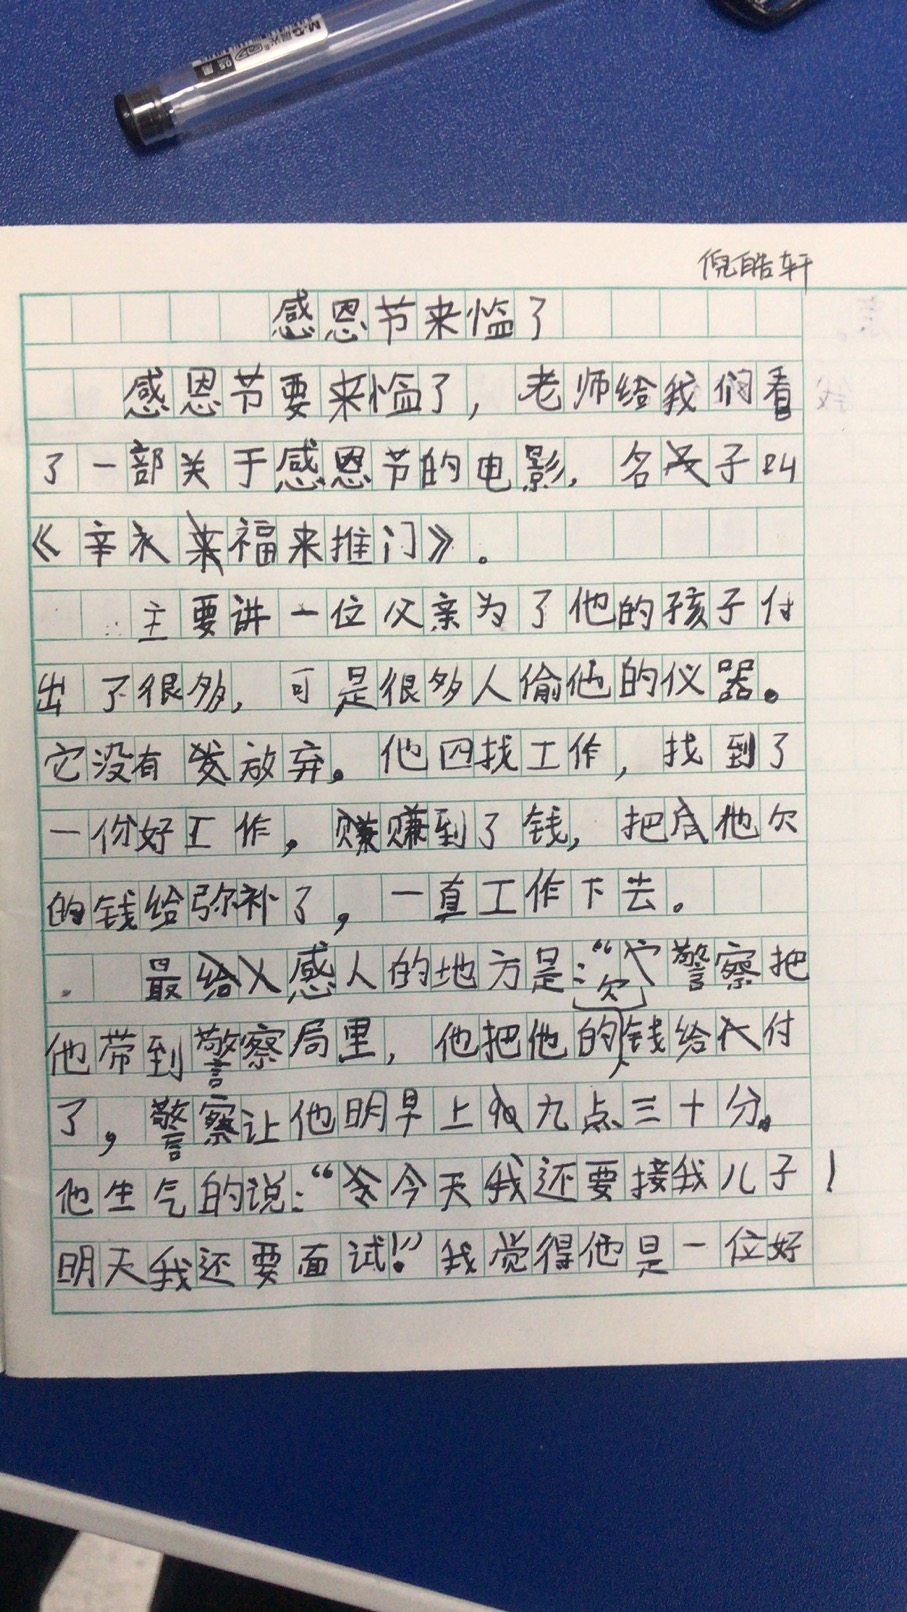 M&G
倪皓轩
感恩节来临了
感恩节要来临了，老师给我们看
了一部关于感恩节的电影，名子叫
《幸福来推门》。
主要讲一位父亲为了他的孩子付
出了很多，可是很多人偷他的仪器。
它没有放弃。他四找工作，找到了
一份好工作。赚到了钱，把他欠
的钱给弥补了，一直工作下去。
最感人的地方是：警察把
他带到警察局里，他把他欠的钱给付
了，警察让他明早上九点三十分。
他生气的说：“今天我还要接我儿子！
明天我还要面试！”我觉得他是一位好